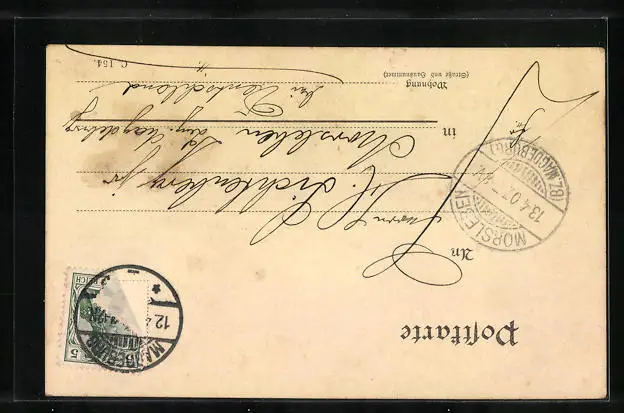 Postkarte
An
Herrn H. Lichtenberg jr
in Morsleben
Bez. Magdeburg
Wohnung
(Straße und Hausnummer)
C. 154.
MORSLEBEN
13.4.02
(BZ. MAGDEBURG)
MAGDEBURG
12.4
5
REICH